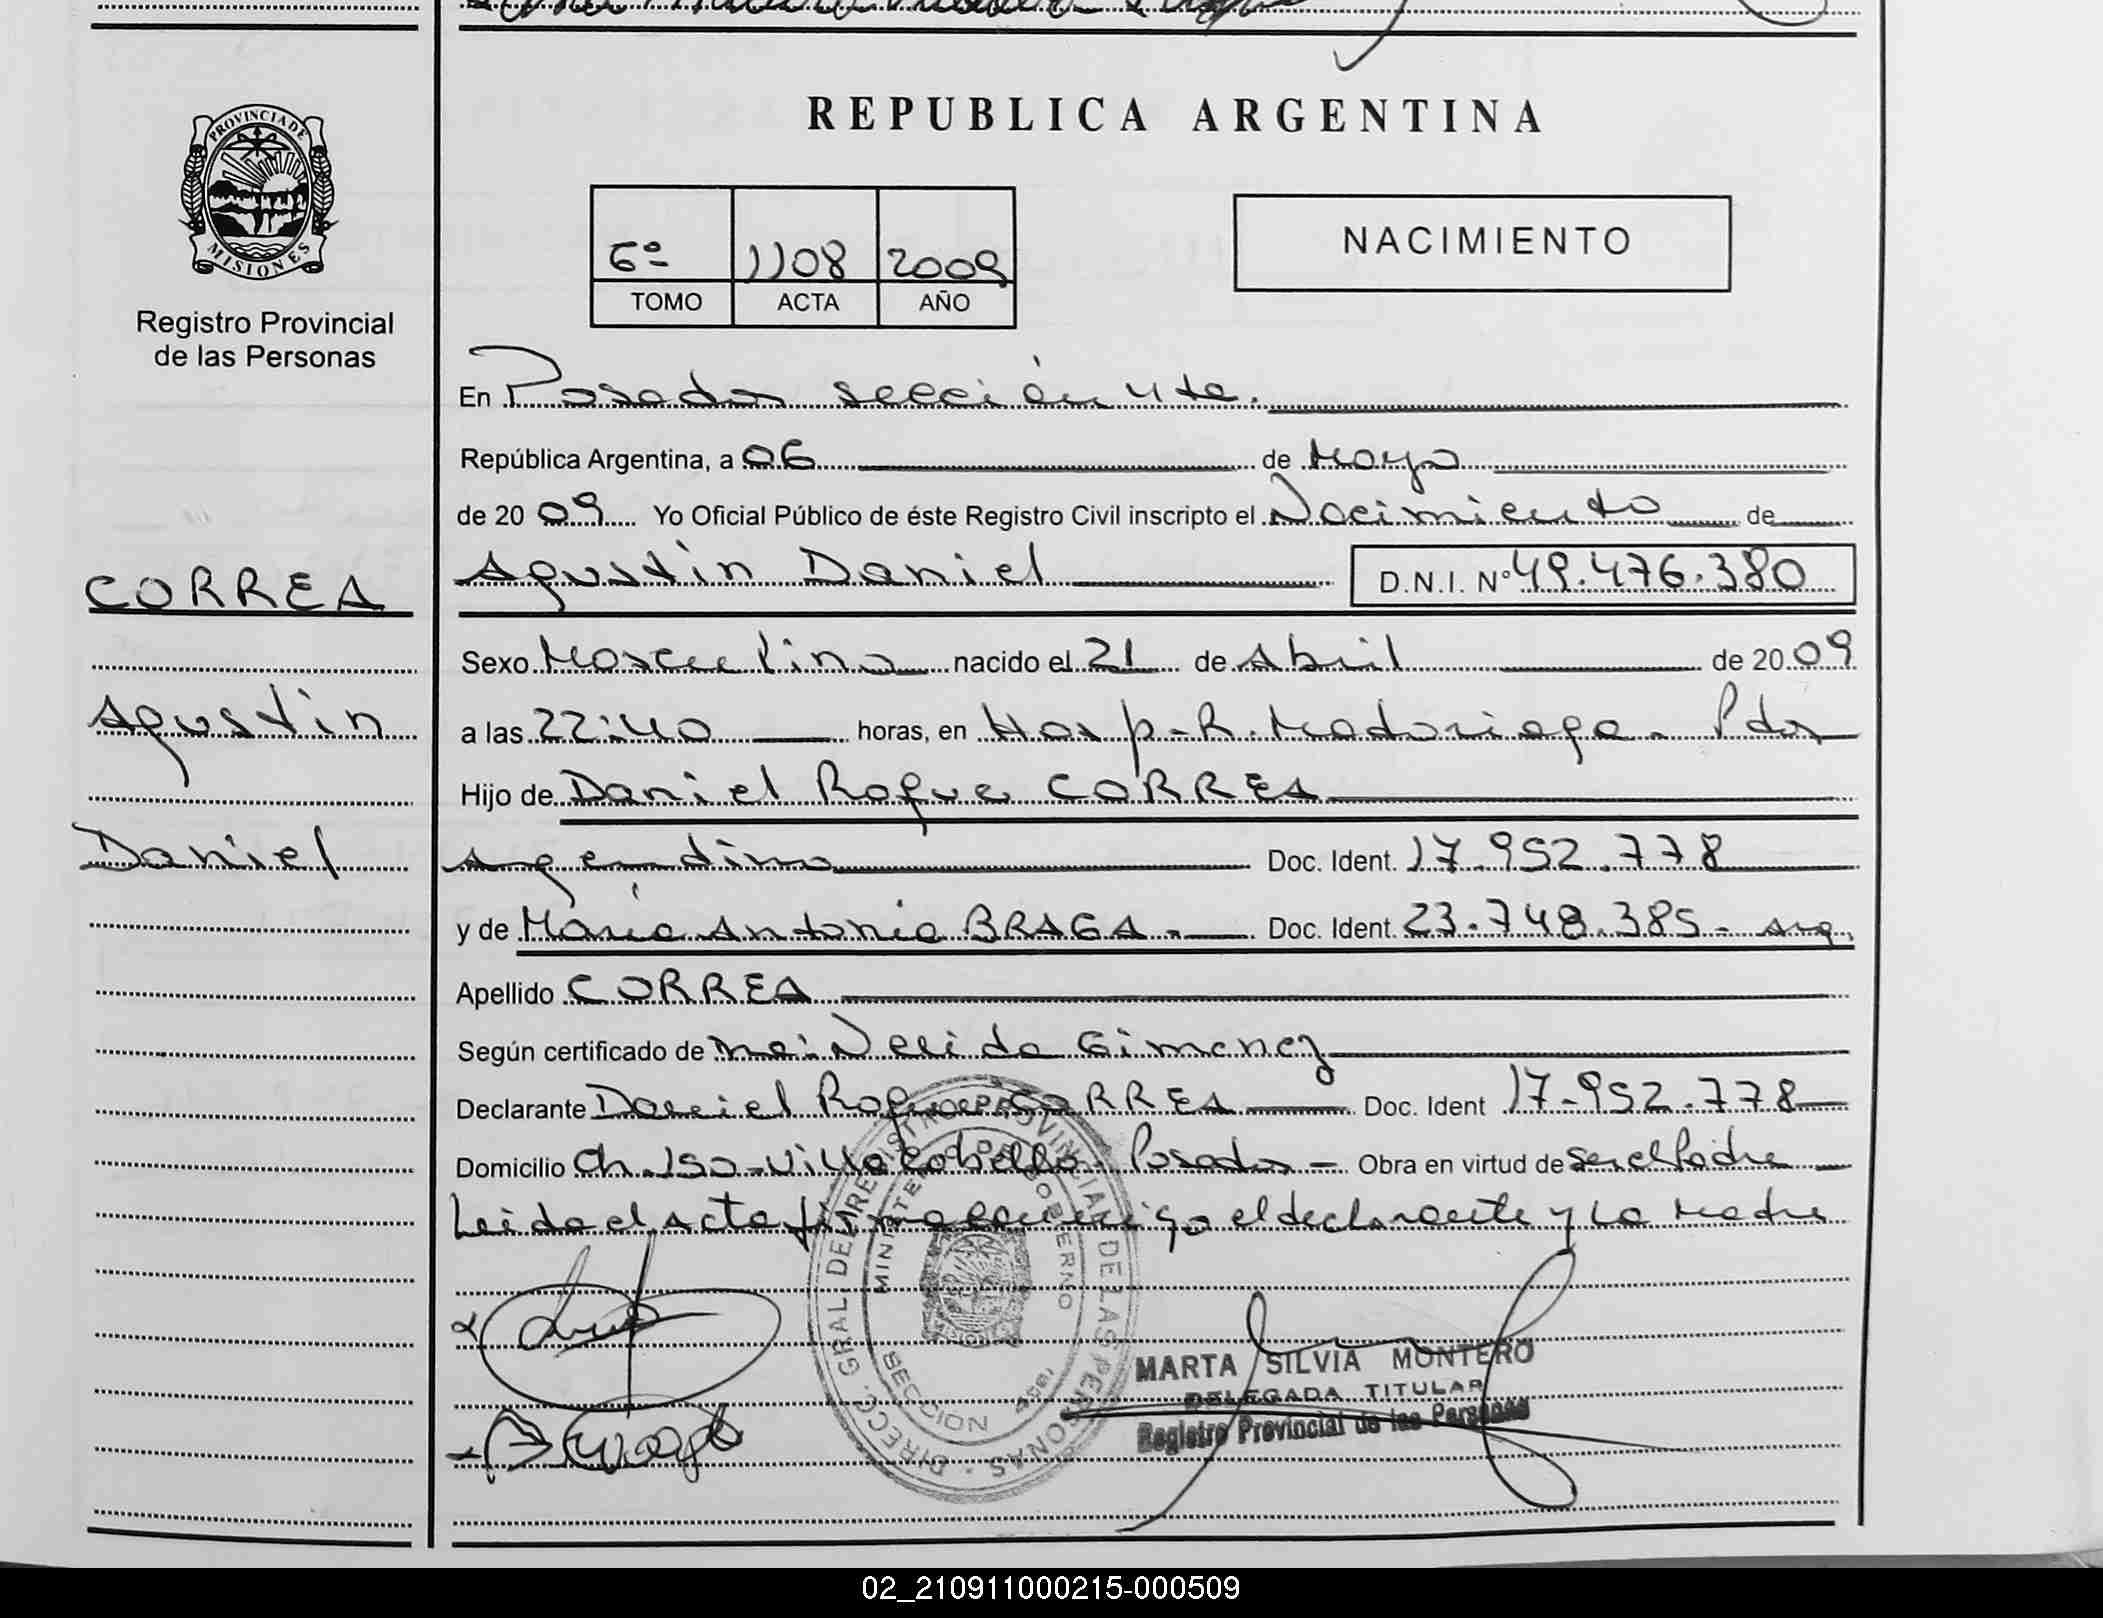 REPUBLICA ARGENTINA
PROVINCIA DE
MISIONES
Registro Provincial
de las Personas
6º 1108 2009
TOMO ACTA AÑO
NACIMIENTO
En Posadas sección 4ta.
República Argentina, a 06 de Mayo
de 2009 Yo Oficial Público de éste Registro Civil inscripto el Nacimiento de
CORREA
Agustin Daniel D.N.I. Nº 49.476.380
Sexo Masculino nacido el 21 de Abril de 2009
Agustin
a las 22:40 horas, en Hosp. R. Madariaga - Pdas
Hijo de Daniel Roque CORREA
Daniel
Argentino Doc. Ident. 17.952.778
y de María Antonia BRAGA.- Doc. Ident. 23.748.385- Arg.
Apellido CORREA
Según certificado de Gimenez
Declarante Daniel Roque CORREA Doc. Ident 17.952.778
Domicilio Ch. 150-Villa Cabello- Posadas- Obra en virtud de ser el Padre
Leida el acta firma conmigo el declarante y la Madre
DIRECC. GRAL. DEL REGISTRO PROVINCIAL DE LAS PERSONAS
MINISTERIO DE GOBIERNO
SECCION
MARTA SILVIA MONTERO
DELEGADA TITULAR
Registro Provincial de las Personas
02_210911000215-000509